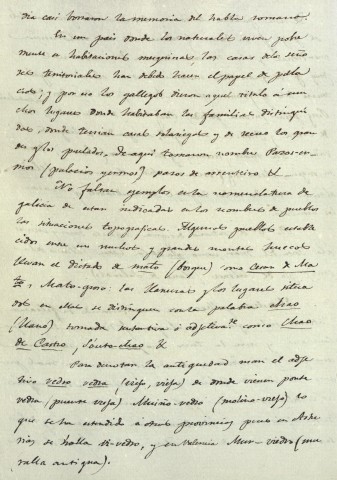 dia casi borraron la memoria del habla romana.
En un pais donde la naturales viven pobre
mente en habitaciones mezquinas, las casas de los seño
res territoriales han debido hacer el papel de pala
cios; y por eso los gallegos dieron aquel título á mu
chos lugares donde habitaban las familias distingui
das, donde tenian casas solariegas y de recreo los gran
des y los prelados. De aqui tomaron nombre Pazos-er
mos (palacios yermos) pazos de
No faltan ejemplos en la nomenclatura de
galicia de estar indicadas en los nombres de pueblos
las situaciones topograficas. Algunos pueblos estable
cidos entre un muchos y grandes montes
llevan el dictado de mato (bosque) como Casas de Ma
to, Mato-groso: las llanuras y los lugares situa
dos en ellas se distinguen con la palabra chao
(llano) tomada sustantiva ó adjetivamte como Chao
de Castro, Souto-chao &
Para denotar la antiguedad usan el adje
tivo vedro vedra (viejo, vieja) de donde vienen ponte
vedra (puente vieja) Muiño-vedro (molino-viejo) lo
que se ha estendido a otras provincias pues en Astu
rias se halla -vedro, y en Valencia Mur-viedro (mu
ralla antigua).